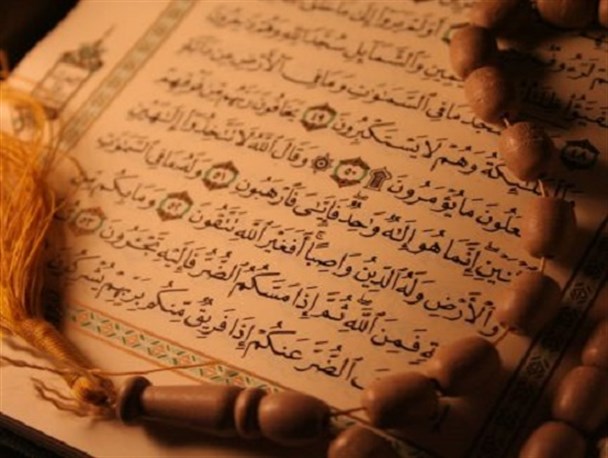 أَوَلَمْ يَرَوْا۟ إِلَىٰ مَا
وَٱلشَّمَآئِلِ سُجَّدًا لِّلَّهِ وَهُمْ
٤٨ سْجُدُ مَا فِى ٱلسَّمَٰوَٰتِ وَمَا فِى ٱلْأَرْضِ مِن
وَٱلْمَلَٰٓئِكَةُ وَهُمْ لَا يَسْتَكْبِرُونَ ٤٩ يَخَافُونَ رَبَّهُم مِّن فَوْقِهِمْ
عَلُونَ مَا يُؤْمَرُونَ ۩ ٥٠ ۞ وَقَالَ ٱللَّهُ لَا تَتَّخِذُوٓا۟ إِلَٰهَيْنِ
نَيْنِ إِنَّمَا هُوَ إِلَٰهٌ وَٰحِدٌ فَإِيَّٰىَ فَٱرْهَبُونِ ٥١ وَلَهُۥ مَا فِى ٱلسَّمَٰوَٰتِ
وَٱلْأَرْضِ وَلَهُ ٱلدِّينُ وَاصِبًا أَفَغَيْرَ ٱللَّهِ تَتَّقُونَ ٥٢ وَمَا بِكُم مِّن
ةٍ فَمِنَ ٱللَّهِ ثُمَّ إِذَا مَسَّكُمُ ٱلضُّرُّ فَإِلَيْهِ تَجْـَٔرُونَ ٥٣
ٱلضُّرَّ عَنكُمْ إِذَا فَرِيقٌ مِّنكُم بِرَبِّهِمْ يُشْرِكُونَ